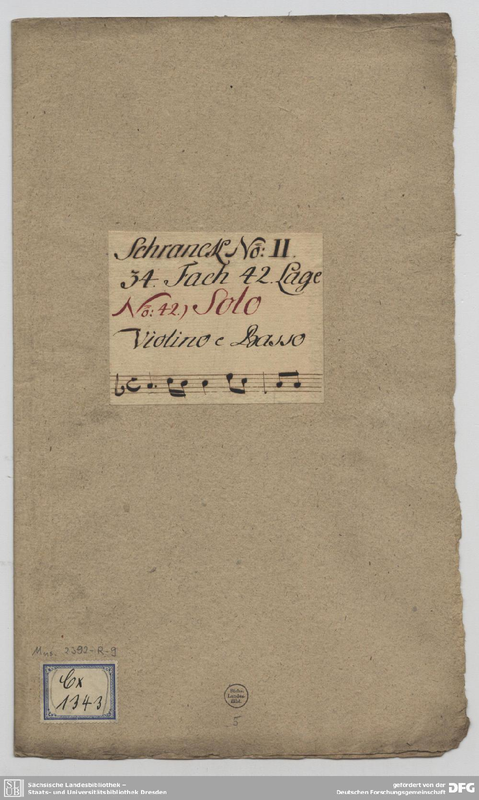 Schranck No: II.
34. Fach 42. Lage
No: 42.) Solo
Violino e Basso
Mus. 2392-R-9
Cx
1343
Sächs.
Landes-
Bibl.
5
SLUB
Sächsische Landesbibliothek –
Staats- und Universitätsbibliothek Dresden
gefördert von der
Deutschen Forschungsgemeinschaft DFG